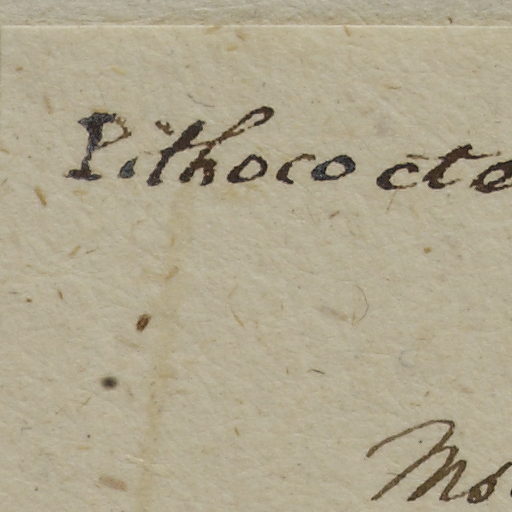 Pithococte
Mo